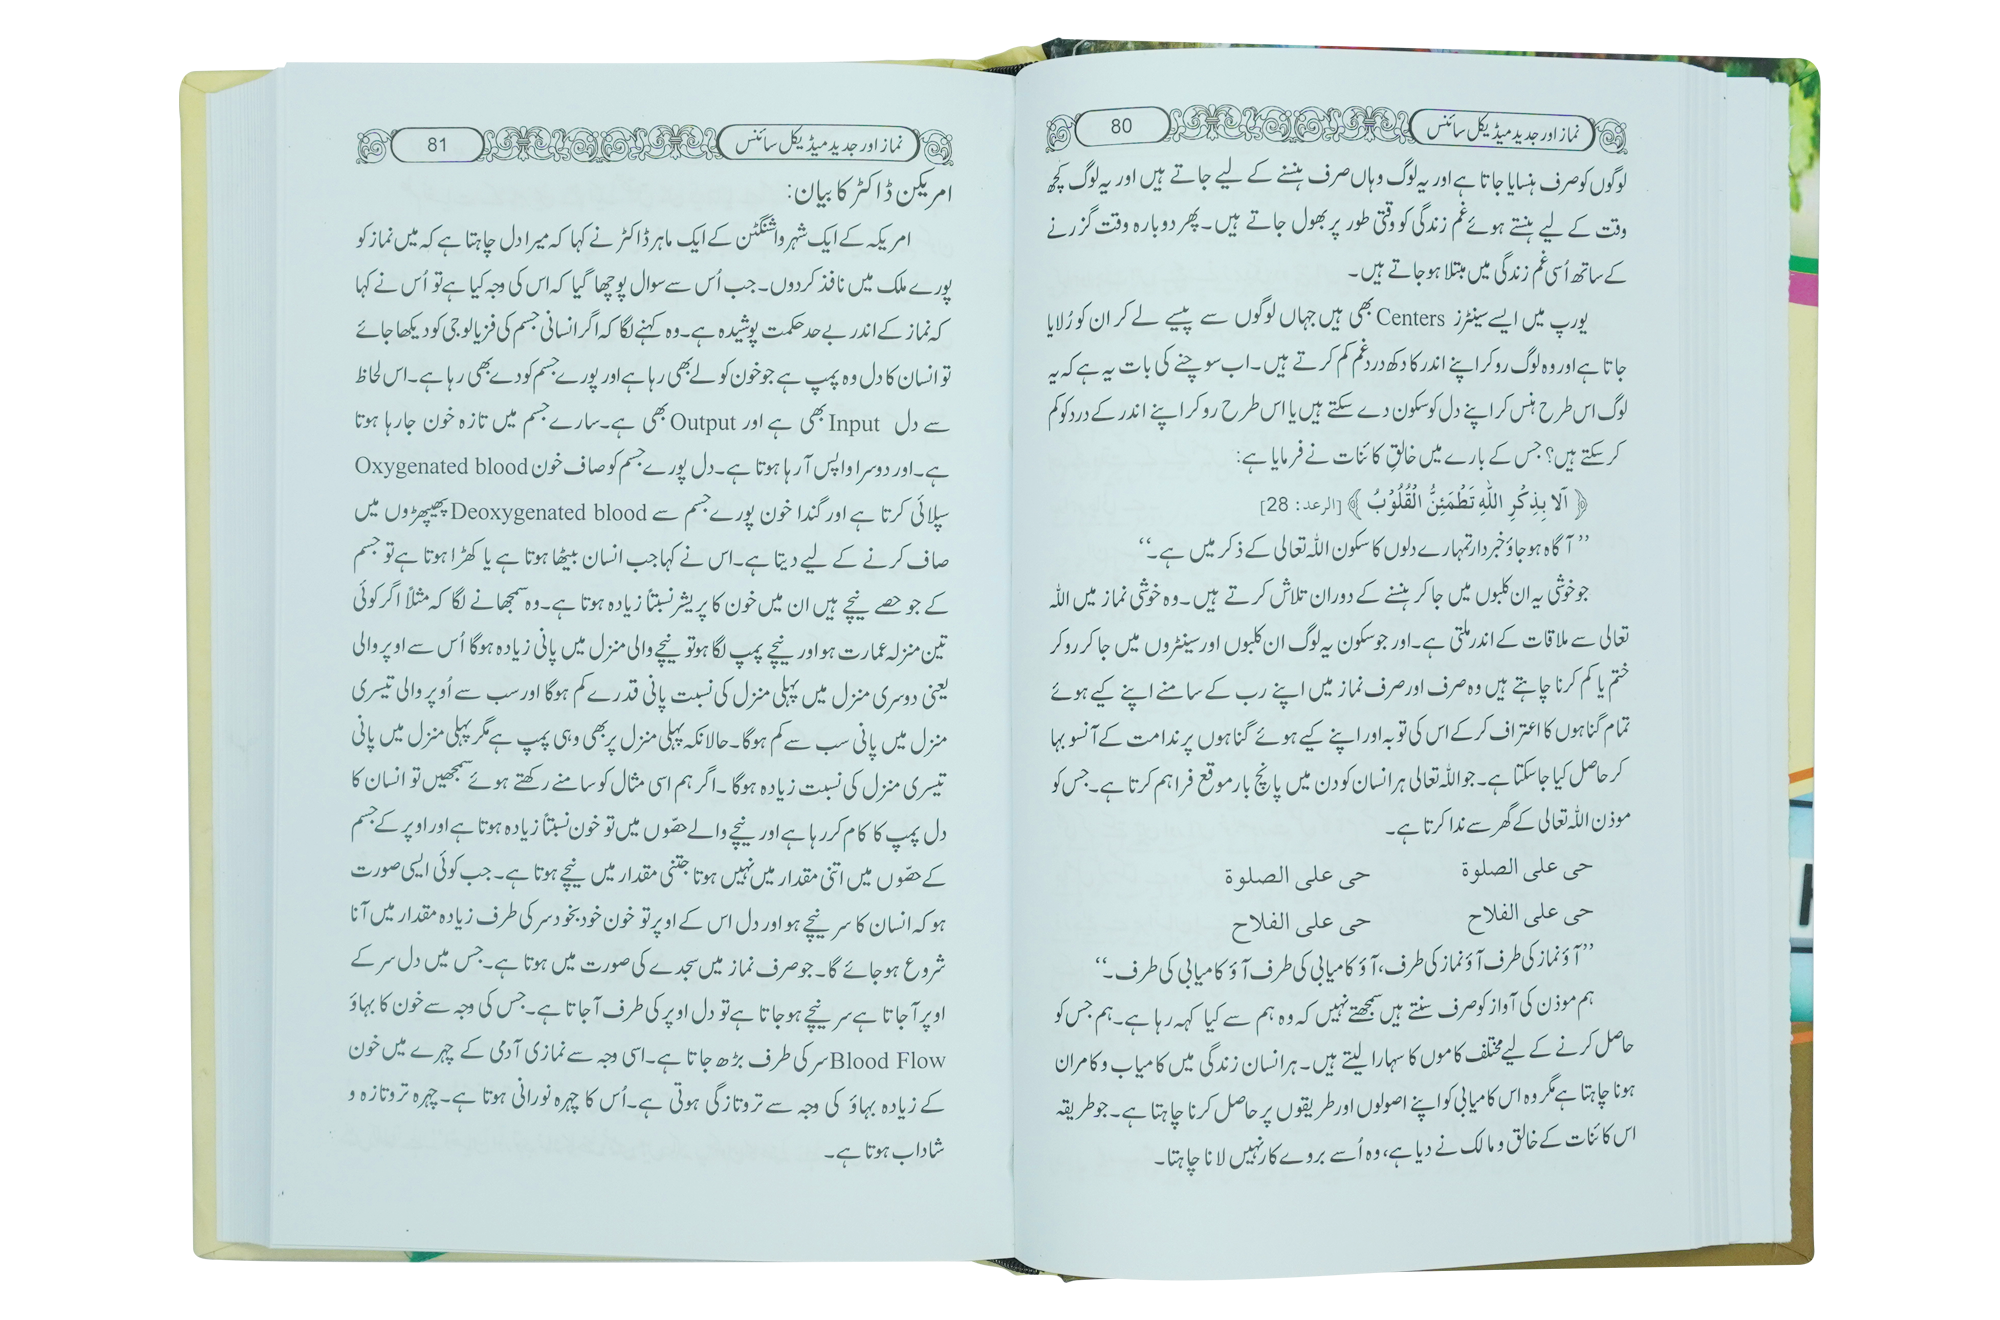 نماز اور جدید میڈیکل سائنس 80
لوگوں کو صرف ہنسایا جاتا ہے اور یہ لوگ وہاں صرف ہنسنے کے لیے جاتے ہیں اور یہ لوگ کچھ
وقت کے لیے ہنستے ہوئے غم زندگی کو وقتی طور پر بھول جاتے ہیں۔ پھر دوبارہ وقت گزرنے
کے ساتھ اُسی غم زندگی میں مبتلا ہو جاتے ہیں۔
یورپ میں ایسے سینٹرز Centers بھی ہیں جہاں لوگوں سے پیسے لے کر ان کو رُلایا
جاتا ہے اور وہ لوگ رو کر اپنے اندر کا دکھ درد غم کم کرتے ہیں۔ اب سوچنے کی بات یہ ہے کہ یہ
لوگ اس طرح ہنس کر اپنے دل کو سکون دے سکتے ہیں یا اس طرح رو کر اپنے اندر کے درد کو کم
کر سکتے ہیں؟ جس کے بارے میں خالقِ کائنات نے فرمایا ہے:
﴿ اَلَا بِذِكْرِ اللّٰهِ تَطْمَئِنُّ الْقُلُوْبُ ﴾ [الرعد: 28]
’’آگاہ ہو جاؤ خبردار تمہارے دلوں کا سکون اللہ تعالی کے ذکر میں ہے۔‘‘
جو خوشی یہ ان کلبوں میں جا کر ہنسنے کے دوران تلاش کرتے ہیں۔ وہ خوشی نماز میں اللہ
تعالی سے ملاقات کے اندر ملتی ہے۔ اور جو سکون یہ لوگ ان کلبوں اور سینٹروں میں جا کر رو کر
ختم یا کم کرنا چاہتے ہیں وہ صرف اور صرف نماز میں اپنے رب کے سامنے اپنے کیے ہوئے
تمام گناہوں کا اعتراف کر کے اس کی توبہ اور اپنے کیے ہوئے گناہوں پر ندامت کے آنسو بہا
کر حاصل کیا جا سکتا ہے۔ جو اللہ تعالی ہر انسان کو دن میں پانچ بار موقع فراہم کرتا ہے۔ جس کو
موذن اللہ تعالی کے گھر سے ندا کرتا ہے۔
حی علی الصلوة حی علی الصلوة
حی علی الفلاح حی علی الفلاح
’’آؤ نماز کی طرف آؤ نماز کی طرف، آؤ کامیابی کی طرف آؤ کامیابی کی طرف۔‘‘
ہم موذن کی آواز کو صرف سنتے ہیں سمجھتے نہیں کہ وہ ہم سے کیا کہہ رہا ہے۔ ہم جس کو
حاصل کرنے کے لیے مختلف کاموں کا سہارا لیتے ہیں۔ ہر انسان زندگی میں کامیاب و کامران
ہونا چاہتا ہے مگر وہ اس کامیابی کو اپنے اصولوں اور طریقوں پر حاصل کرنا چاہتا ہے۔ جو طریقہ
اس کائنات کے خالق و مالک نے دیا ہے، وہ اُسے بروے کار نہیں لانا چاہتا۔
نماز اور جدید میڈیکل سائنس 81
امریکن ڈاکٹر کا بیان:
امریکہ کے ایک شہر واشنگٹن کے ایک ماہر ڈاکٹر نے کہا کہ میرا دل چاہتا ہے کہ میں نماز کو
پورے ملک میں نافذ کر دوں۔ جب اُس سے سوال پوچھا گیا کہ اس کی وجہ کیا ہے تو اُس نے کہا
کہ نماز کے اندر بے حد حکمت پوشیدہ ہے۔ وہ کہنے لگا کہ اگر انسانی جسم کی فزیالوجی کو دیکھا جائے
تو انسان کا دل وہ پمپ ہے جو خون کو لے بھی رہا ہے اور پورے جسم کو دے بھی رہا ہے۔ اس لحاظ
سے دل Input بھی ہے اور Output بھی ہے۔ سارے جسم میں تازہ خون جا رہا ہوتا
ہے۔ اور دوسرا واپس آ رہا ہوتا ہے۔ دل پورے جسم کو صاف خون Oxygenated blood
سپلائی کرتا ہے اور گندا خون پورے جسم سے Deoxygenated blood پھیپھڑوں میں
صاف کرنے کے لیے دیتا ہے۔ اس نے کہا جب انسان بیٹھا ہوتا ہے یا کھڑا ہوتا ہے تو جسم
کے جو حصے نیچے ہیں ان میں خون کا پریشر نسبتاً زیادہ ہوتا ہے۔ وہ سمجھانے لگا کہ مثلاً اگر کوئی
تین منزلہ عمارت ہو اور نیچے پمپ لگا ہو تو نیچے والی منزل میں پانی زیادہ ہوگا اُس سے اوپر والی
یعنی دوسری منزل میں پہلی منزل کی نسبت پانی قدرے کم ہوگا اور سب سے اُوپر والی تیسری
منزل میں پانی سب سے کم ہوگا۔ حالانکہ پہلی منزل پر بھی وہی پمپ ہے مگر پہلی منزل میں پانی
تیسری منزل کی نسبت زیادہ ہوگا۔ اگر ہم اسی مثال کو سامنے رکھتے ہوئے سمجھیں تو انسان کا
دل پمپ کا کام کر رہا ہے اور نیچے والے حصّوں میں تو خون نسبتاً زیادہ ہوتا ہے اور اوپر کے جسم
کے حصّوں میں اتنی مقدار میں نہیں ہوتا جتنی مقدار میں نیچے ہوتا ہے۔ جب کوئی ایسی صورت
ہو کہ انسان کا سر نیچے ہو اور دل اس کے اوپر تو خون خود بخود سر کی طرف زیادہ مقدار میں آنا
شروع ہو جائے گا۔ جو صرف نماز میں سجدے کی صورت میں ہوتا ہے۔ جس میں دل سر کے
اوپر آ جاتا ہے سر نیچے ہو جاتا ہے تو دل اوپر کی طرف آ جاتا ہے۔ جس کی وجہ سے خون کا بہاؤ
Blood Flow سر کی طرف بڑھ جاتا ہے۔ اسی وجہ سے نمازی آدمی کے چہرے میں خون
کے زیادہ بہاؤ کی وجہ سے تروتازگی ہوتی ہے۔ اُس کا چہرہ نورانی ہوتا ہے۔ چہرہ تروتازہ و
شاداب ہوتا ہے۔